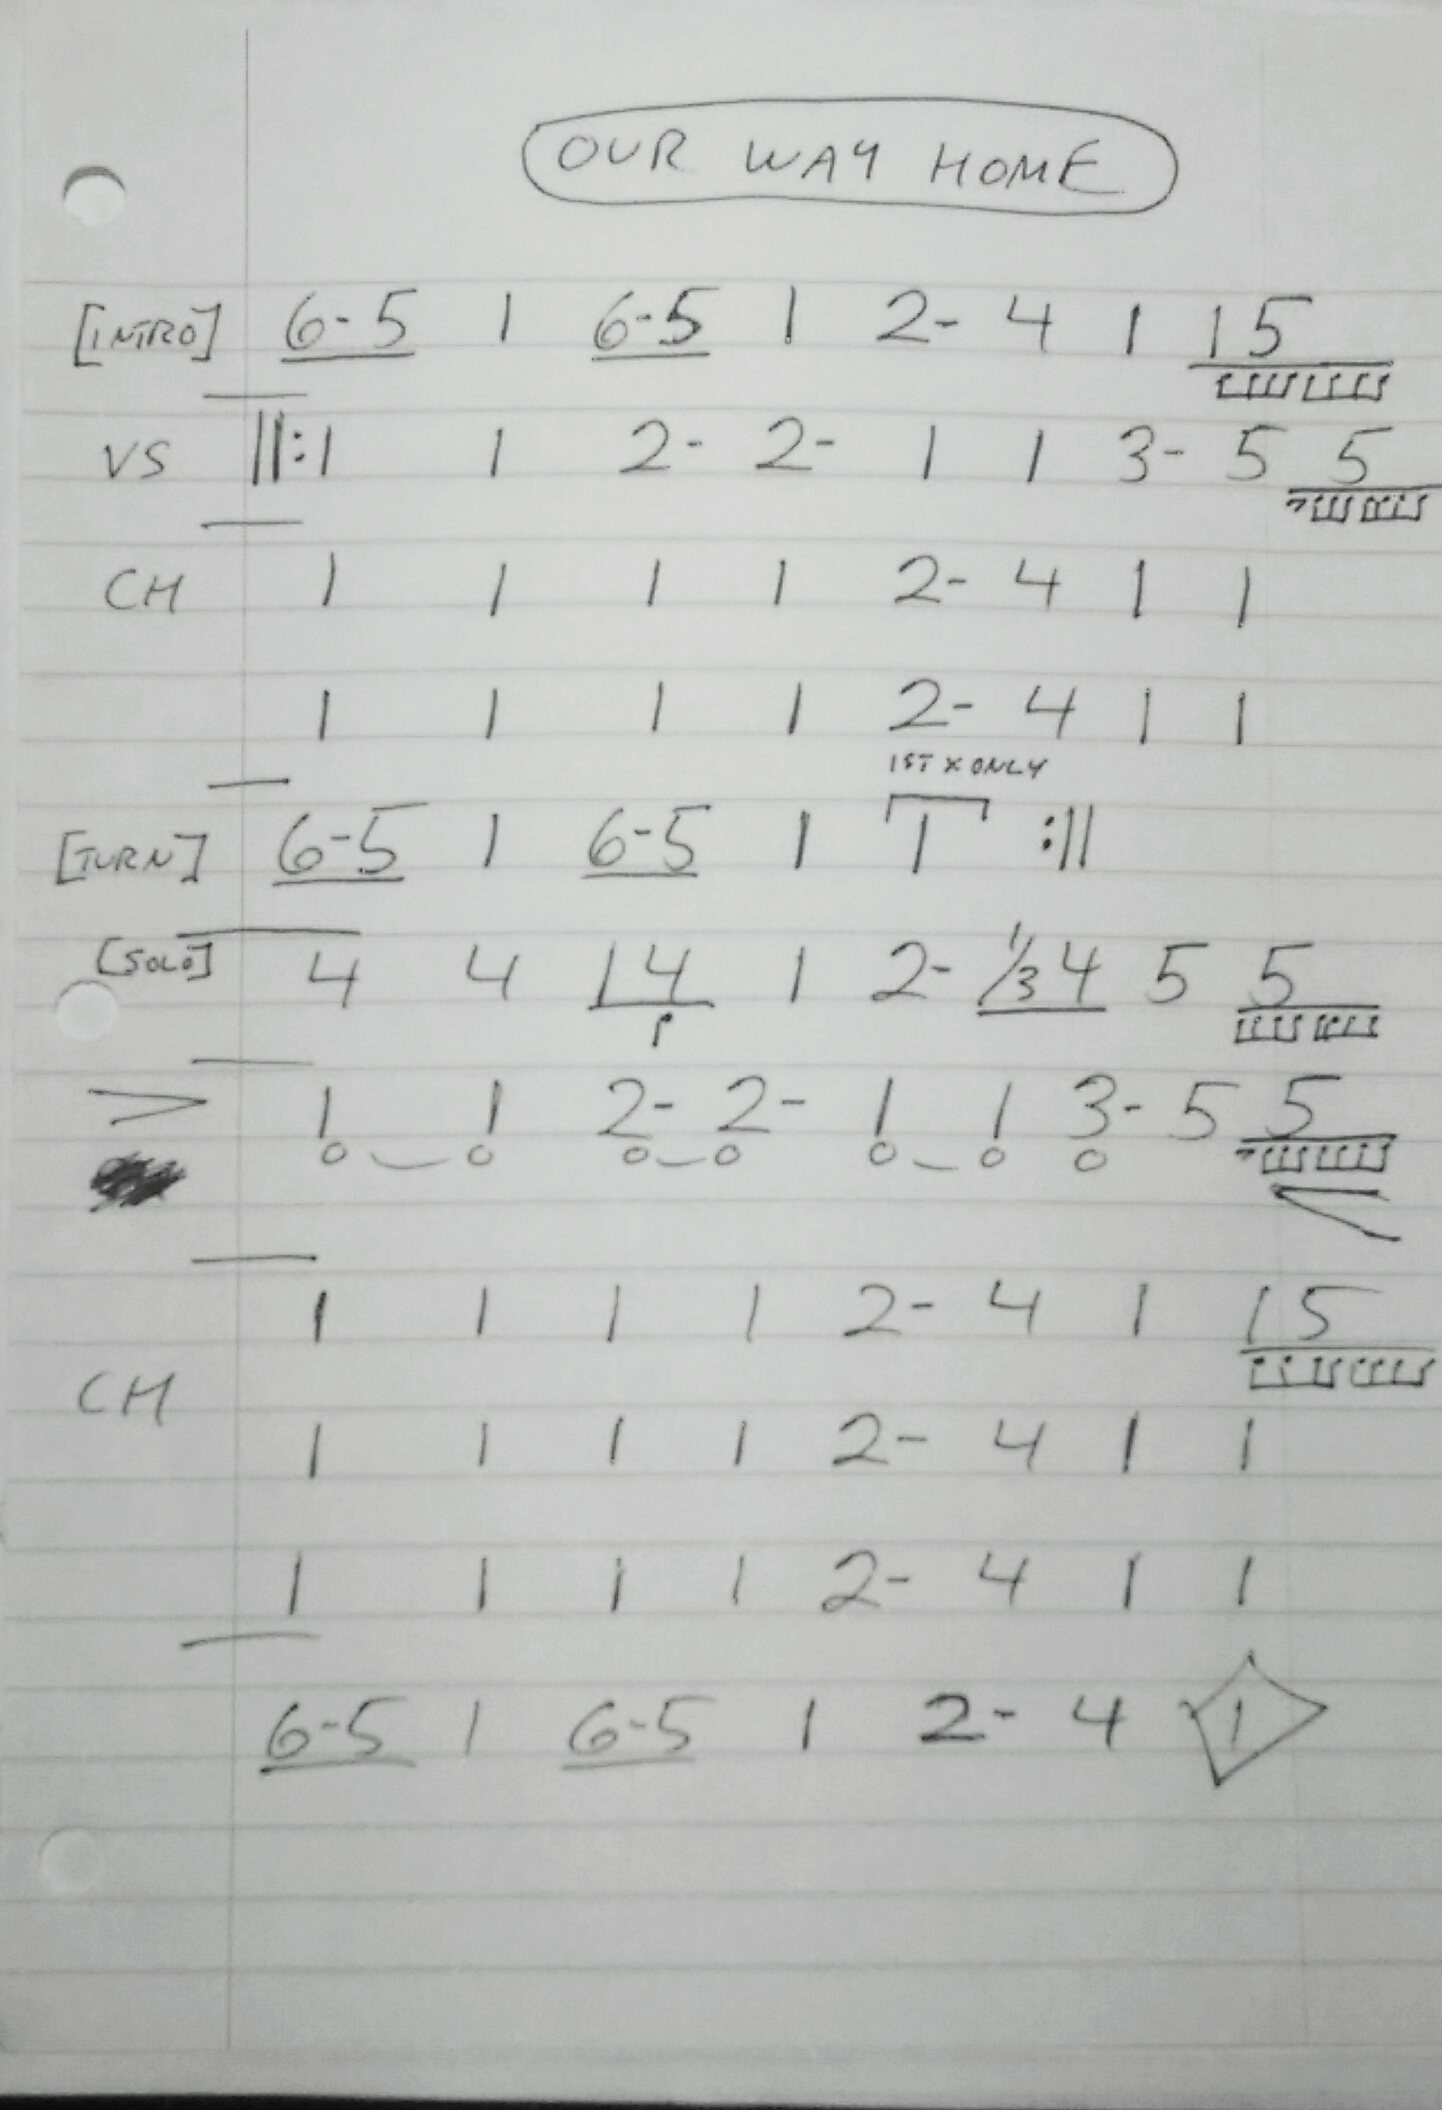 OUR WAY HOME
[INTRO] 6- 5 1 6- 5 1 2- 4 1 1 5
VS ||: 1 1 2- 2- 1 1 3- 5 5
CH 1 1 1 1 2- 4 1 1
1 1 1 1 2- 4 1 1
1ST X ONLY
[TURN] 6- 5 1 6- 5 1 1 :||
[SOLO] 4 4 1 4 1 2- 1/3 4 5 5
> 1 1 2- 2- 1 1 3- 5 5
<
1 1 1 1 2- 4 1 1 5
CH
1 1 1 1 2- 4 1 1
1 1 1 1 2- 4 1 1
6- 5 1 6- 5 1 2- 4 1